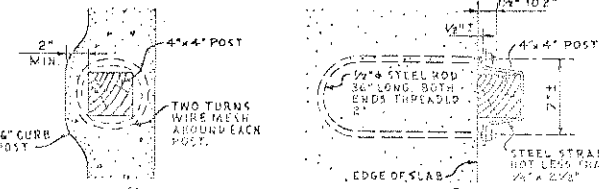 2"
MIN.
4"x4" POST
TWO TURNS
WIRE MESH
AROUND EACH
POST.
6" CURB
POST
1/2" TO 2"
1/2" ±
4"x4" POST
1/2"⌀ STEEL ROD
36" LONG, BOTH
ENDS THREADED
2"
7"±
EDGE OF SLAB
STEEL STRA
NOT LESS THA